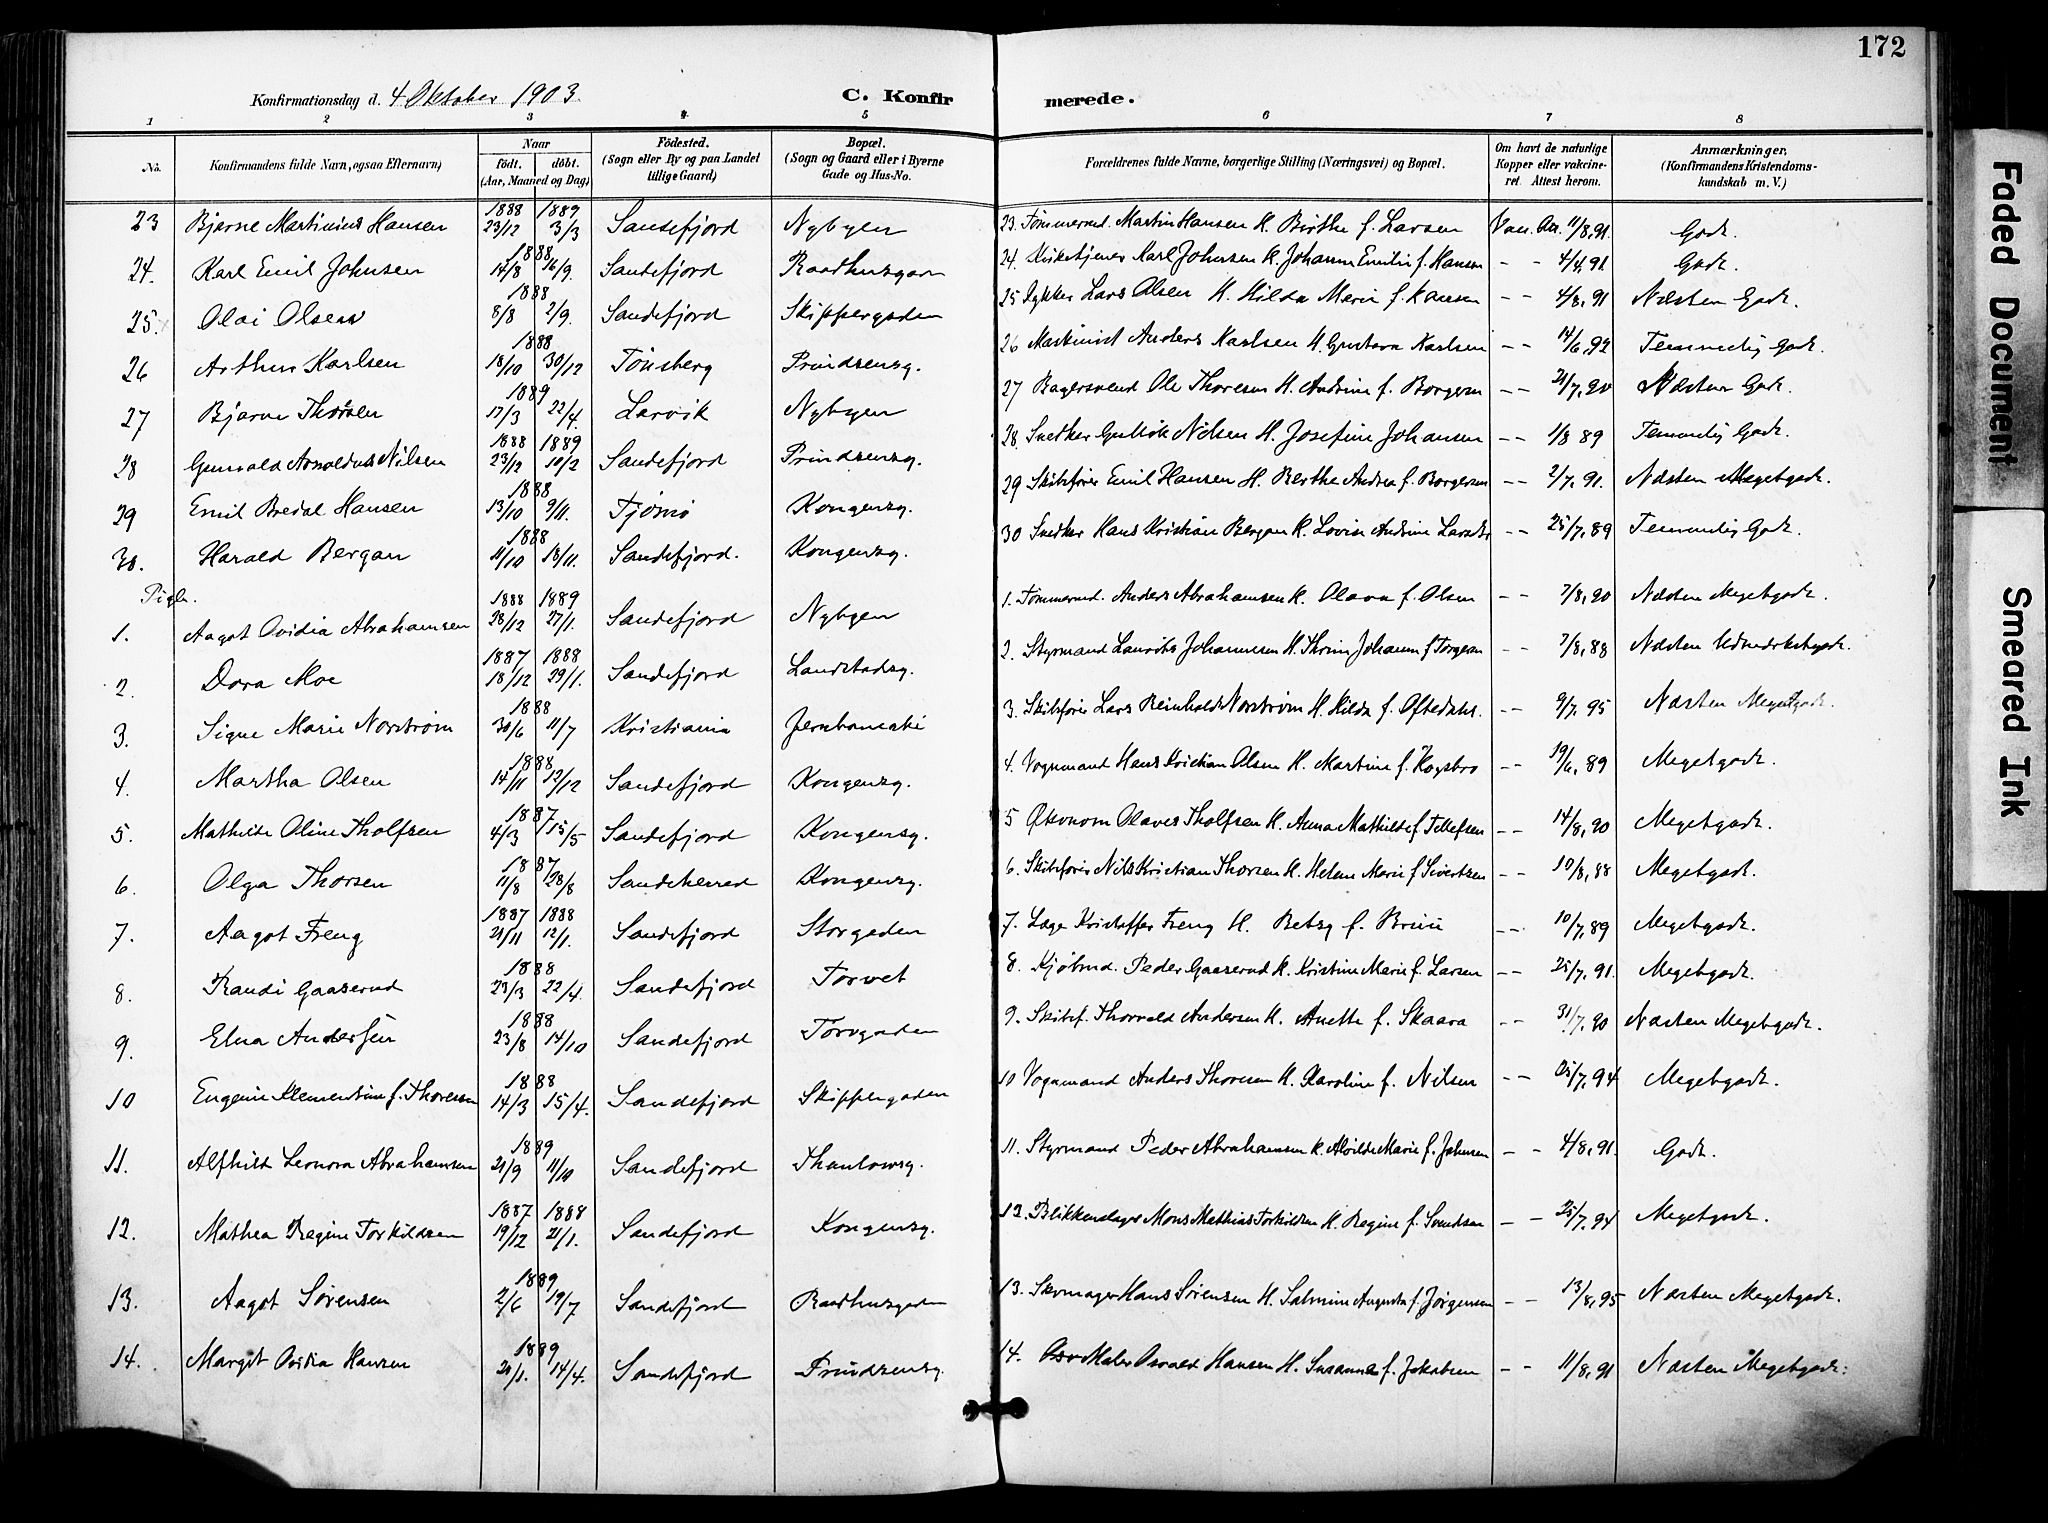 172
Konfirmationsdag d. 4 Oktober 1903. C. Konfirmerede.
1 2 3 4 5 6 7 8
No. Konfirmandens fulde Navn, ogsaa Efternavn) Naar födt. döbt. (Aar, Maaned og Dag) Födested. (Sogn eller By og paa Landet tillige Gaard) Bopæl. (Sogn og Gaard eller i Byerne Gade og Hus-No. Forældrenes fulde Navne, borgerlige Stilling (Næringsvei) og Bopæl. Om havt de naturlige Kopper eller vakcineret. Attest herom. Anmærkninger, (Konfirmandens Kristendomskundskab m. V.)
23 Bjarne Martinius Hansen 1888 23/12 1889 3/3 Sandefjord Nybyen 23. Tømmermd. Martin Hansen H. Birthe f. Larsen Vac. Att. 11/8, 91. Godt.
24. Karl Emil Johnsen 1888 14/8 16/9. Sandefjord Raadhusgaden 24. Kirketjener Karl Johnsen H. Johanne Emilie f. Hansen - - 4/4, 91 Godt.
25. Olai Olsen 1888 8/8 2/9. Sandefjord Skippergaden 25 Lars Olsen H. Hilda Marie f. Hansen - - 4/8, 91 Næsten Godt.
26 Arthur Karlsen 1888 18/10 30/12 Tönsberg Prindsensg. 26 Maskinist Anders Karlsen H. Gustava Karlsen - - 14/6, 92 Temmelig Godt.
27 Bjarne Thorsen 1889 17/3 22/4. Larvik Nybyen 27 Bagersvend Ole Thoresen H. Andrine f. Borgersen - - 21/7, 90 Næsten Godt.
28 Gunvald Arnoldus Nilsen 1888 23/12 1889 10/2 Sandefjord Prindsensg. 28. Snedker Gullik Nilsen H. Josefine Johansen - - 1/8 89 Temmelig Godt.
29 Emil Bredal Hansen 1888 13/10 9/11. Tjömö Kongensg. 29 Skibsfører Emil Hansen H. Berthe Andrea f. Borgersen - - 2/7, 91. Næsten Megetgodt.
30. Harald Bergan 1888 11/10 18/11. Sandefjord. Kongensg. 30 Snedker Hans Kristian Bergan H. Lovise Andrine Larsen - - 25/7, 89 Temmelig Godt.
Piger.
1. Aagot Ovidia Abrahamsen 1888 28/12 1889 27/1. Sandefjord Nybyen 1. Tømmermd. Anders Abrahamsen H. Olava f. Olsen - - 7/8, 90 Næsten Megetgodt.
2. Dora Moe 1887 18/12 1888 29/1. Sandefjord Landstadsg. 2. Styrmand Laurits Johannesen H. Johanne f. Torgersen - - 7/8, 88 Næsten Udmerketgodt.
3. Signe Marie Norström 1888 30/6 11/7 Kristiania 3. Skibsfører Lars Reinholdt Norström H. Hilda f. Oftedahl. - - 9/7, 95 Næsten Megetgodt.
4. Martha Olsen 1888 14/11 12/12 Sandefjord Kongensg. 4. Vognmand Hans Kristian Olsen H. Martine f. Hogsbro - - 19/6, 89 Megetgodt.
5. Mathilde Oline Tholfsen 1887 4/3 15/5 Sandefjord Kongensg. 5 Økonom Olaves Tholfsen H. Anna Mathilde f. Tellefsen - - 14/8, 90 Megetgodt.
6. Olga Thorsen 1887 11/8 28/8 Sandeherred Kongensg. 6. Skibsfører Nils Kristian Thorsen H. Helene Marie f. Sivertsen - - 10/8, 88 Megetgodt.
7. Aagot Freng 1887 21/11 1888 12/1. Sandefjord Storgaden 7. Læge Kristoffer Freng H. Betsy f. Bruu - - 10/7, 89 Megetgodt.
8. Randi Gaaserud 1888 23/3 22/4. Sandefjord Torvet 8. Kjöbmd. Peder Gaaserud H. Kristine Marie f. Larsen - - 25/7, 91. Megetgodt.
9. Elna Andersen 1888 23/8 14/10 Sandefjord Torvgaden 9. Skibsf. Thorvald Andersen H. Anette f. Skaara - - 31/7, 90 Næsten Megetgodt.
10 Eugenie Klementine f. Thoresen 1888 14/3 15/4. Sandefjord Skippergaden 10 Vognmand Anders Thoresen H. Karoline f. Nilsen - - 25/7, 94 Megetgodt.
11. Alfhild Leonora Abrahamsen 1889 21/9 11/10 Sandefjord Thaulowsg. 11. Styrmand Peder Abrahamsen H. Alvilde Marie f. Johnsen - - 4/8, 91. Godt.
12. Mathea Regine Torkildsen 1887 19/12 1888 21/1. Sandefjord Kongensg. 12. Blikkenslager Mons Mathias Torkildsen H. Regine f. Svendsen - - 25/7, 94 Megetgodt.
13. Aagot Sörensen 1889 2/6 19/7 Sandefjord Raadhusgaden 13. Skomager Hans Sörensen H. Salmine Augusta f. Jörgensen - - 13/8, 95 Næsten Megetgodt.
14. Margit Ovidia Hansen 1889 21/1. 14/4. Sandefjord Prindsensg. 14. Maler Osvald Hansen H. Susanna f. Jakobsen - - 11/8, 91 Næsten Megetgodt.
Faded Document
Smeared Ink